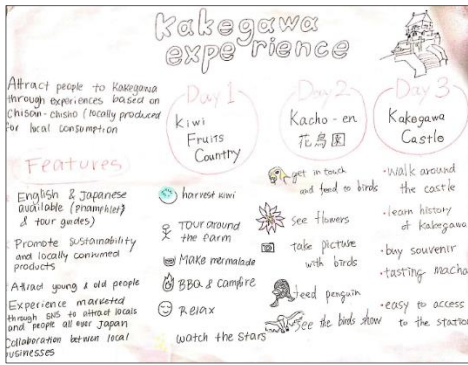 Kakegawa
experience
Attract people to Kakegawa
through experiences based on
Chisan-chisho (locally produced
for local consumption
Features
English & Japanese
available (pnamphlet)
& tour guides)
Promote sustainability
and locally consumed
products
Attract young & old people
Experience marketed
through SNS to attract locals
and people all over Japan
Collaboration between local
businesses
Day 1
Kiwi
Fruits
Country
harvest kiwi
Tour around
the farm
Make mermalade
BBQ & Campfire
Relax
watch the stars
Day 2
Kacho-en
花鳥園
get in touch
and feed to birds
see flowers
take picture
with birds
feed penguin
see the birds show
Day 3
Kakegawa
Castle
・walk around
the castle
・learn history
of kakegawa
・buy souvenir
・tasting macha
・easy to access
to the station